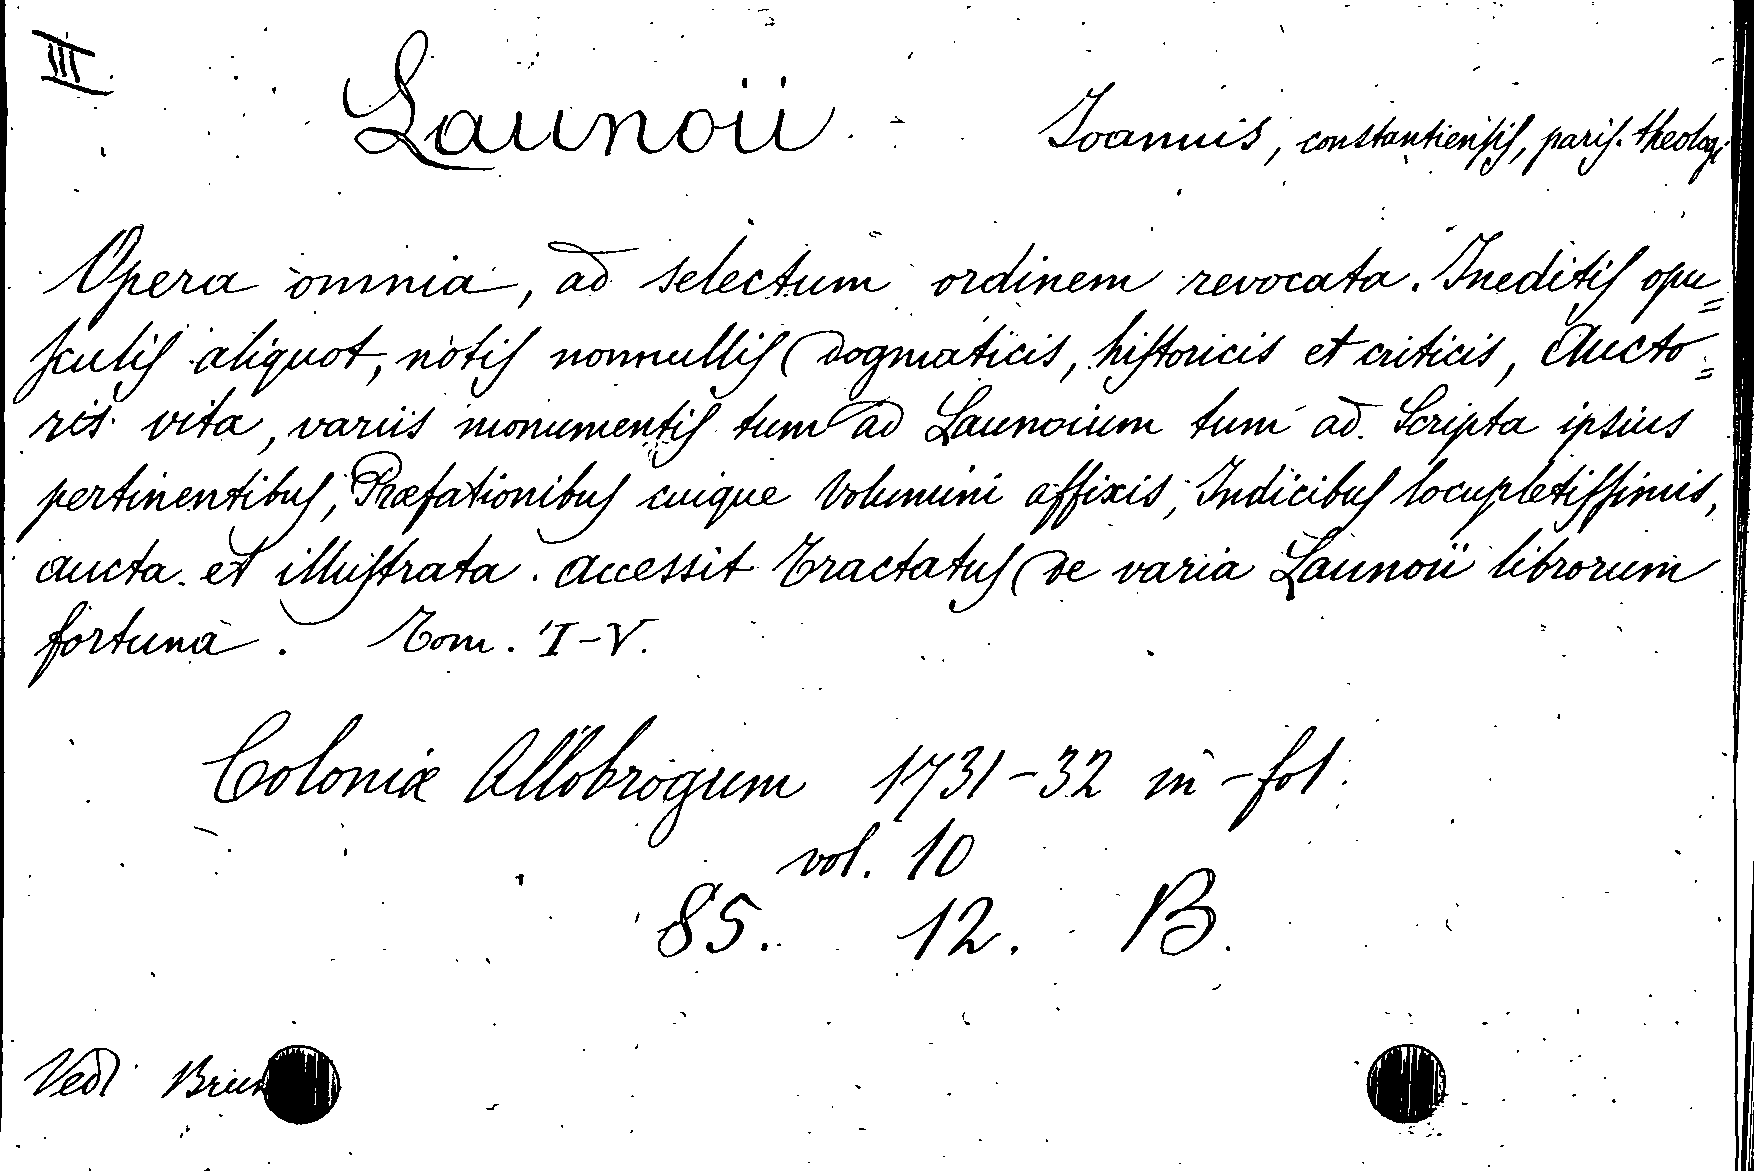 III
Launoii Joannis, constantiensis, paris. theologi
Opera omnia, ad selectum ordinem revocata. Ineditis opu=
sculis aliquot, notis nonnullis dogmaticis, historicis et criticis, Aucto=
ris vita, variis monumentis tum ad Launoium tum ad Scripta ipsius
pertinentibus, Præfationibus cuique Volumini affixis, Indicibus locupletissimis,
aucta et illustrata. Accessit Tractatus de varia Launoii librorum
fortuna. Tom. I-V.
Coloniæ Allobrogum 1731-32 in-fol.
vol. 10
85. 12. B.
Vedi